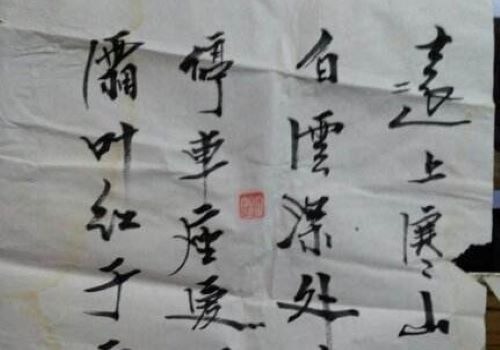 遠上寒山
白雲深处
停車座爱
霜叶红于